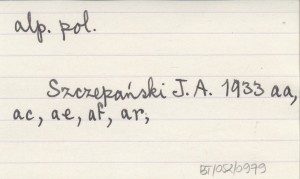 alp. pol.
Szczepański J. A. 1933 aa,
ac, ae, af, ar,
BT/052/0979